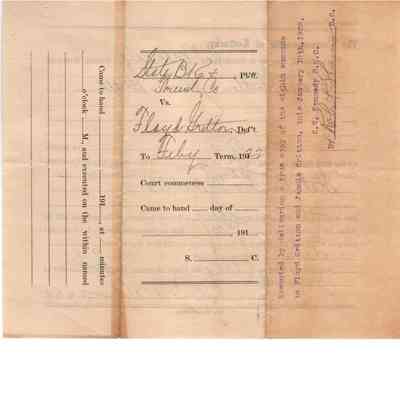 Came to hand 191 , at minutes
o'clock M., and executed on the within named
State Bk &
Trust Co , Pl'ff.
Vs.
Floyd Gritton, Def't.
To Feby Term, 1922
Court commences
Came to hand day of
, 191
S. C.
Executed by delivering a true copy of the within summons
to Floyd Gritton and Fannie Gritton, this January 10th, 1922.
Kennedy S.M.C.
BY D.S.